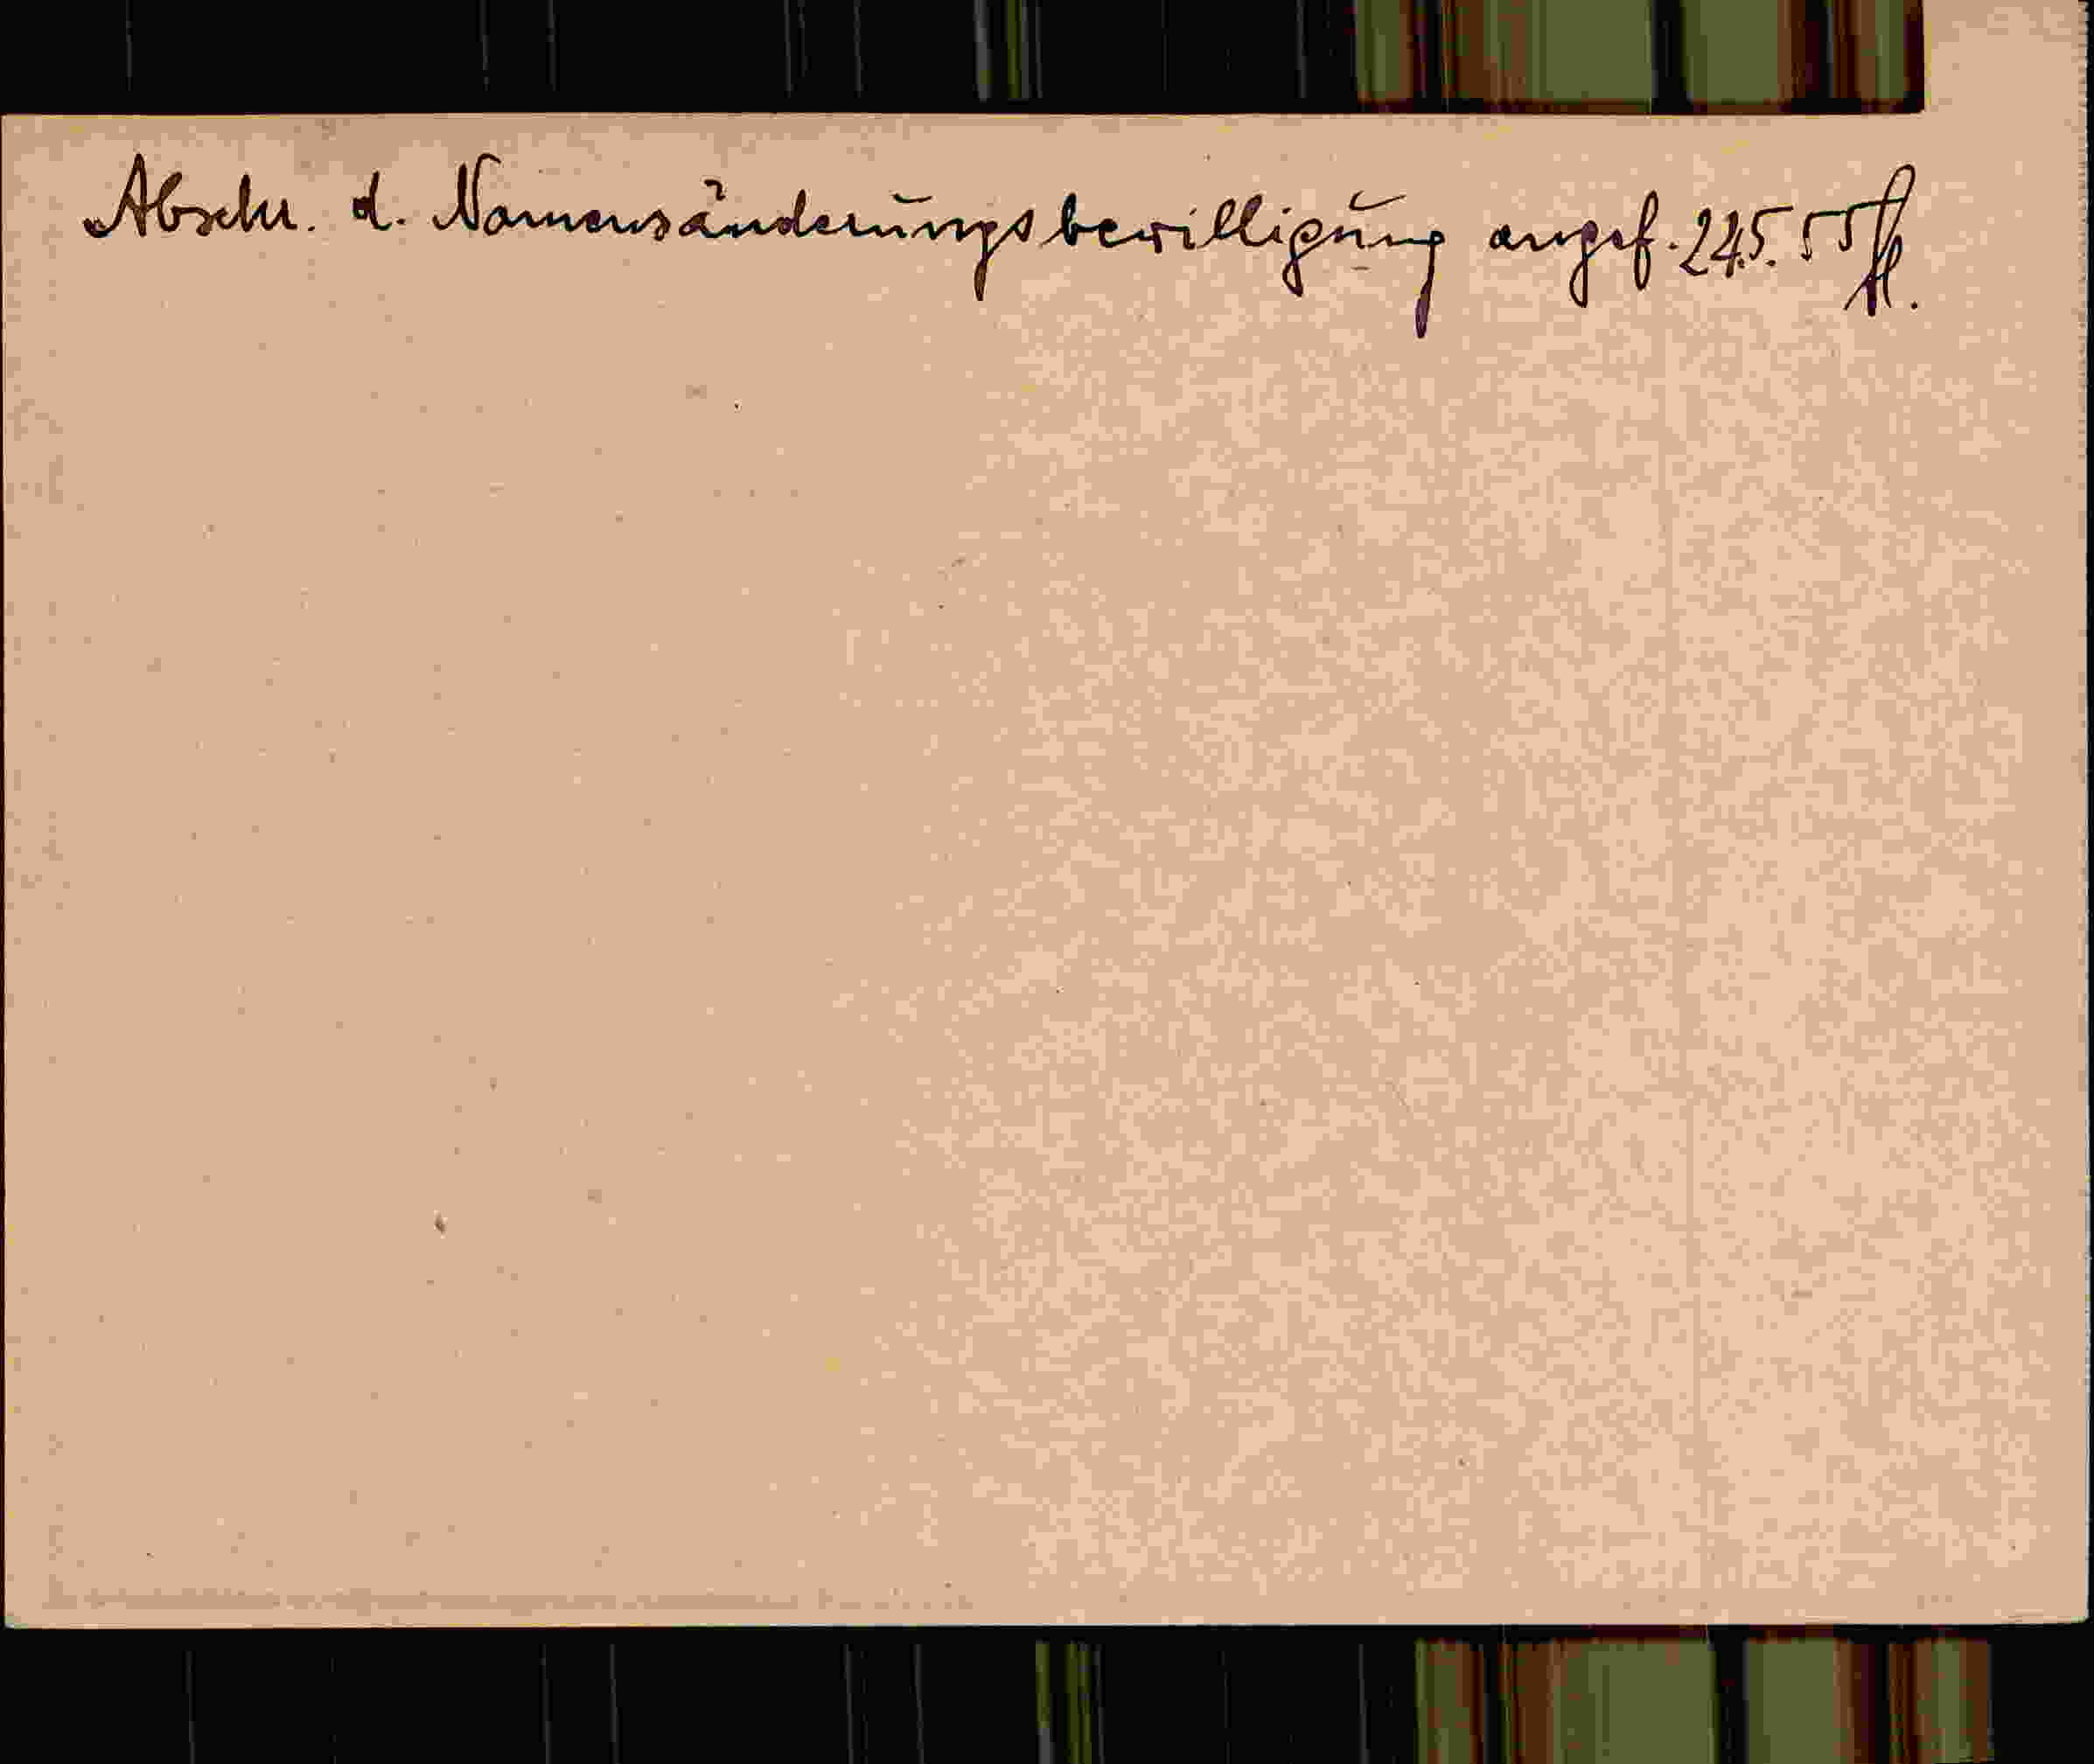 Abschr. d. Namensänderungsbewilligung angef. 24.5.55